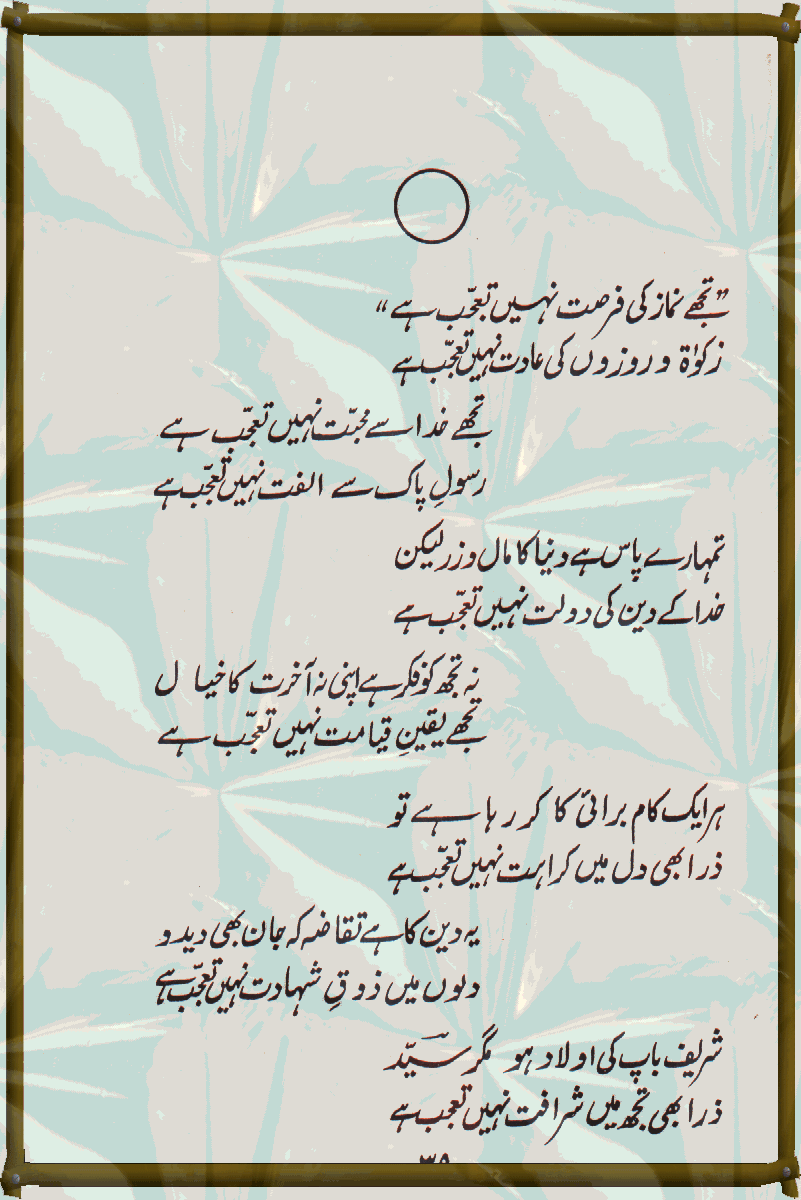 ”تجھے نماز کی فرصت نہیں تعجّب ہے“
زکوٰۃ و روزوں کی عادت نہیں تعجّب ہے
تجھے خدا سے محبّت نہیں تعجّب ہے
رسولِ پاک سے الفت نہیں تعجّب ہے
تمہارے پاس ہے دنیا کا مال و زر لیکن
خدا کے دین کی دولت نہیں تعجّب ہے
نہ تجھ کو فکر ہے اپنی نہ آخرت کا خیال
تجھے یقینِ قیامت نہیں تعجّب ہے
ہر ایک کام برائی کا کر رہا ہے تو
ذرا بھی دل میں کراہت نہیں تعجّب ہے
یہ دین کا ہے تقاضہ کہ جان بھی دیدو
دلوں میں ذوقِ شہادت نہیں تعجّب ہے
شریف باپ کی اولاد ہو مگر سیّد
ذرا بھی تجھ میں شرافت نہیں تعجب ہے